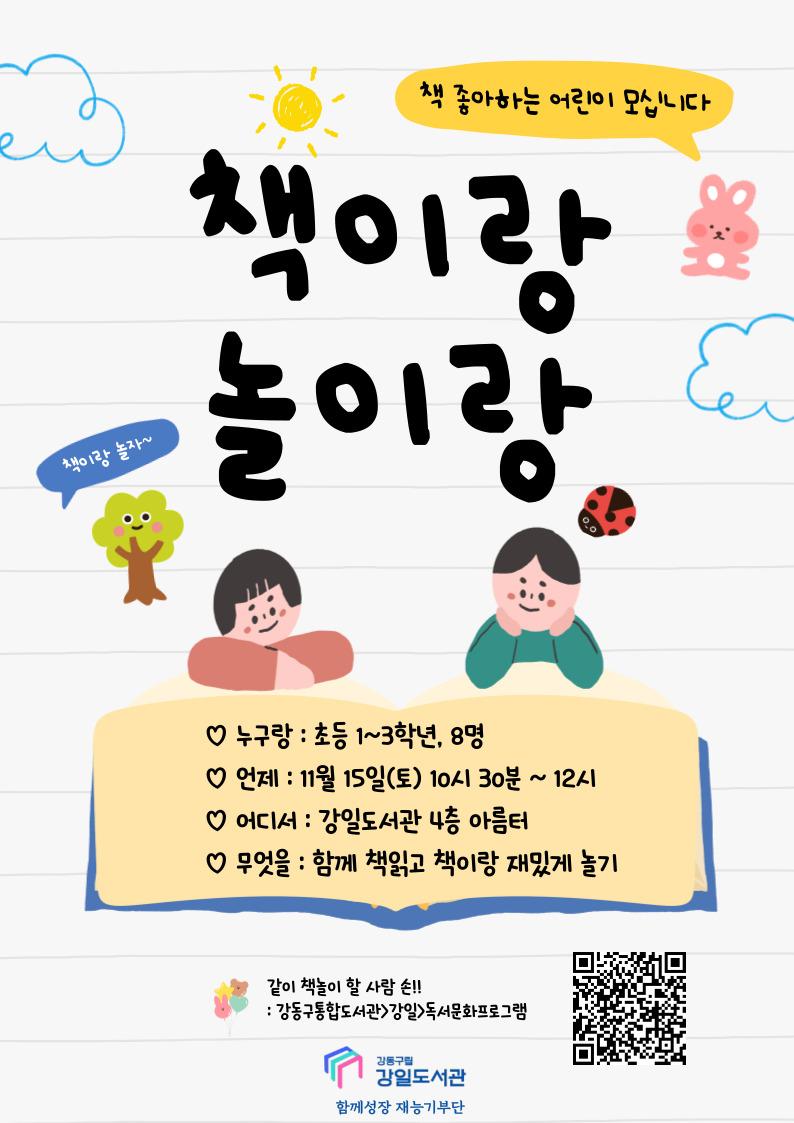 책 좋아하는 어린이 모십니다
책이랑
놀이랑
책이랑 놀자~
♡ 누구랑 : 초등 1~3학년, 8명
♡ 언제 : 11월 15일(토) 10시 30분 ~ 12시
♡ 어디서 : 강일도서관 4층 아름터
♡ 무엇을 : 함께 책읽고 책이랑 재밌게 놀기
같이 책놀이 할 사람 손!!
: 강동구통합도서관>강일>독서문화프로그램
강동구립
강일도서관
함께성장 재능기부단